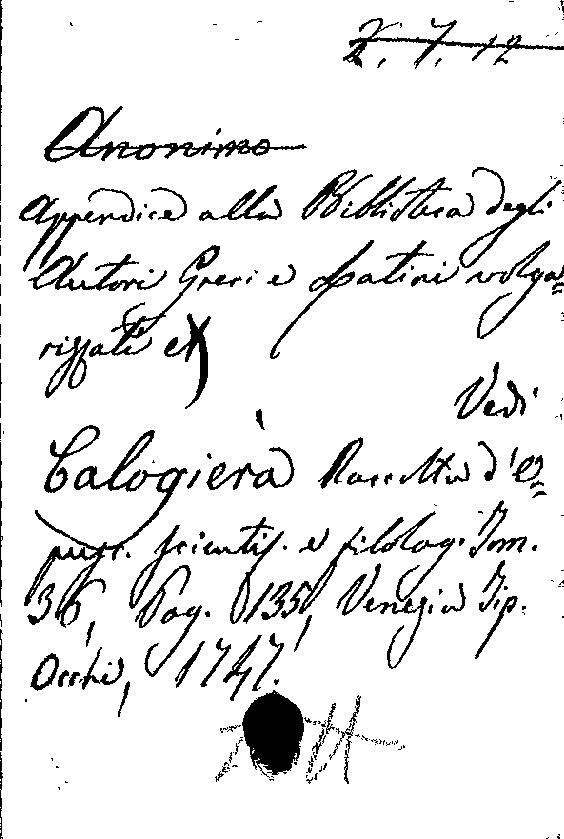 Z. 7. 12
Anonimo
Appendice alla Biblioteca degli
Autori Greci e Latini volga=
rizzati ec)
Vedi
Calogierà Raccolta d'o=
pusc. scientif. e filolog. Tom.
36, Pag. 135, Venezia Tip.
Occhi, 1747.